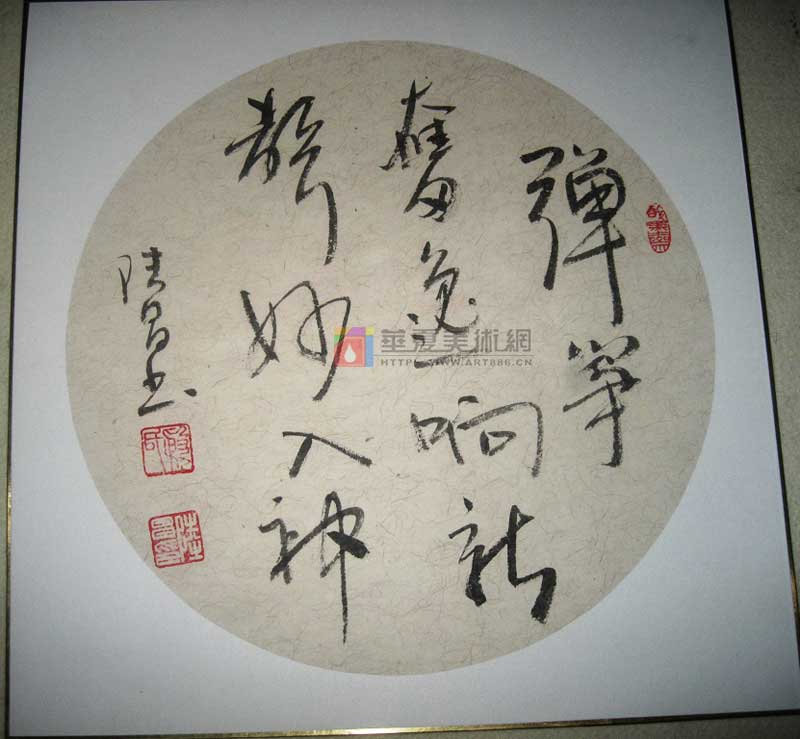 弹筝
奮逸响新
聲妙入神
陆昌书
華夏美術網
HTTP://WWW.ART886.CN